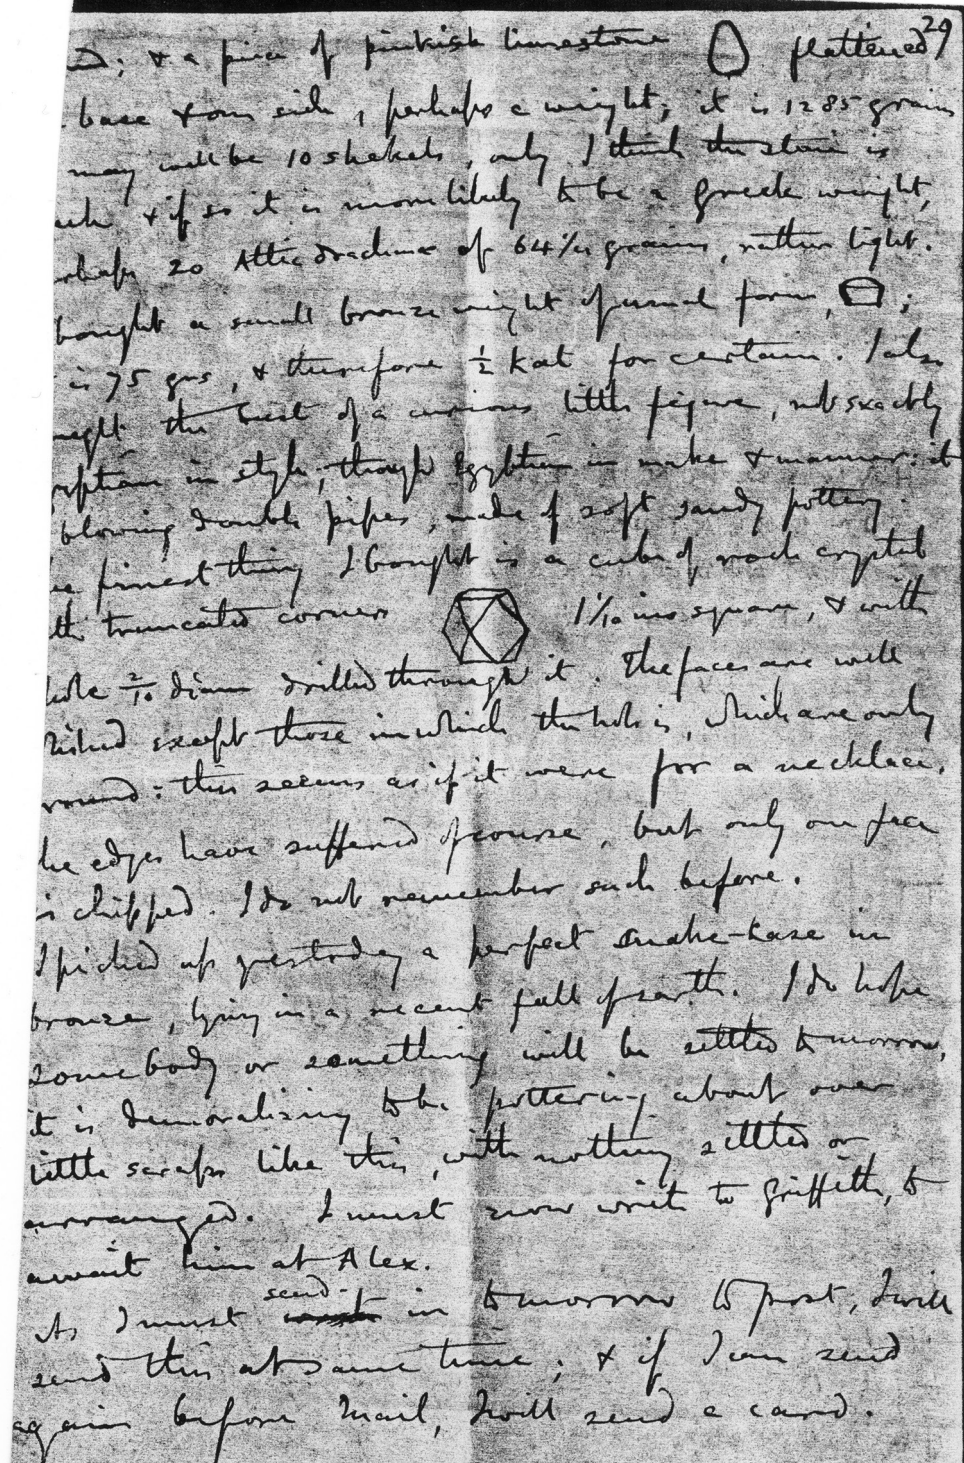 29
; & a piece of pinkish limestone flattened
base & one side, perhaps a weight; it is 1285 grains
may well be 10 shekels, only I think the stone is
& if so it is more likely to be a Greek weight,
20 Attic drachmae of 64¼ grains, rather light.
bought a small bronze weight of usual form, ;
is 75 grs, & therefore ½ Kat for certain. I also
the bust of a curious little figure, not exactly
in style, though Egyptian in make & manner: it
blowing double pipes, made of soft sandy pottery.
finest thing I bought is a cube of rock crystal
truncated corners 1 1/10 ins square, & with
hole 2/10 diam drilled through it. The faces are well
except those in which the hole is, which are only
: this seems as if it were for a necklace.
he edges have suffered of course, but only one face
is chipped. I do not remember such before.
I picked up yesterday a perfect snake-case in
bronze, lying in a recent fall of earth. I do hope
somebody or something will be settled tomorrow,
it is demoralising to be pottering about over
little scraps like this, with nothing settled or
arranged. I must now write to Griffith, to
await him at Alex.
send
As I must in tomorrow to post, I will
send this at same time; & if I can send
again before Mail, I will send a card.